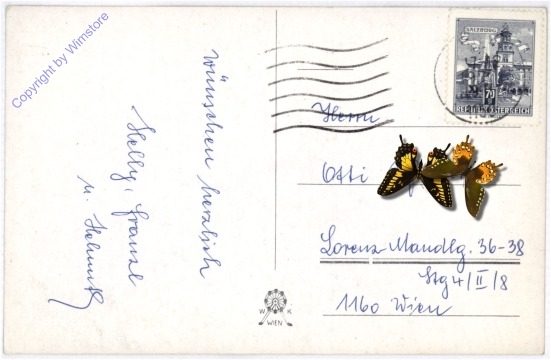 Copyright by Wimstore
wünschen herzlich
Helly, Franzl
u. Helmuth
SALZBURG
70
REPUBLIK ÖSTERREICH
Herrn
Otti
Lorenz-Mandlg. 36-38
Stg 4/II/8
1160 Wien
W K
WIEN